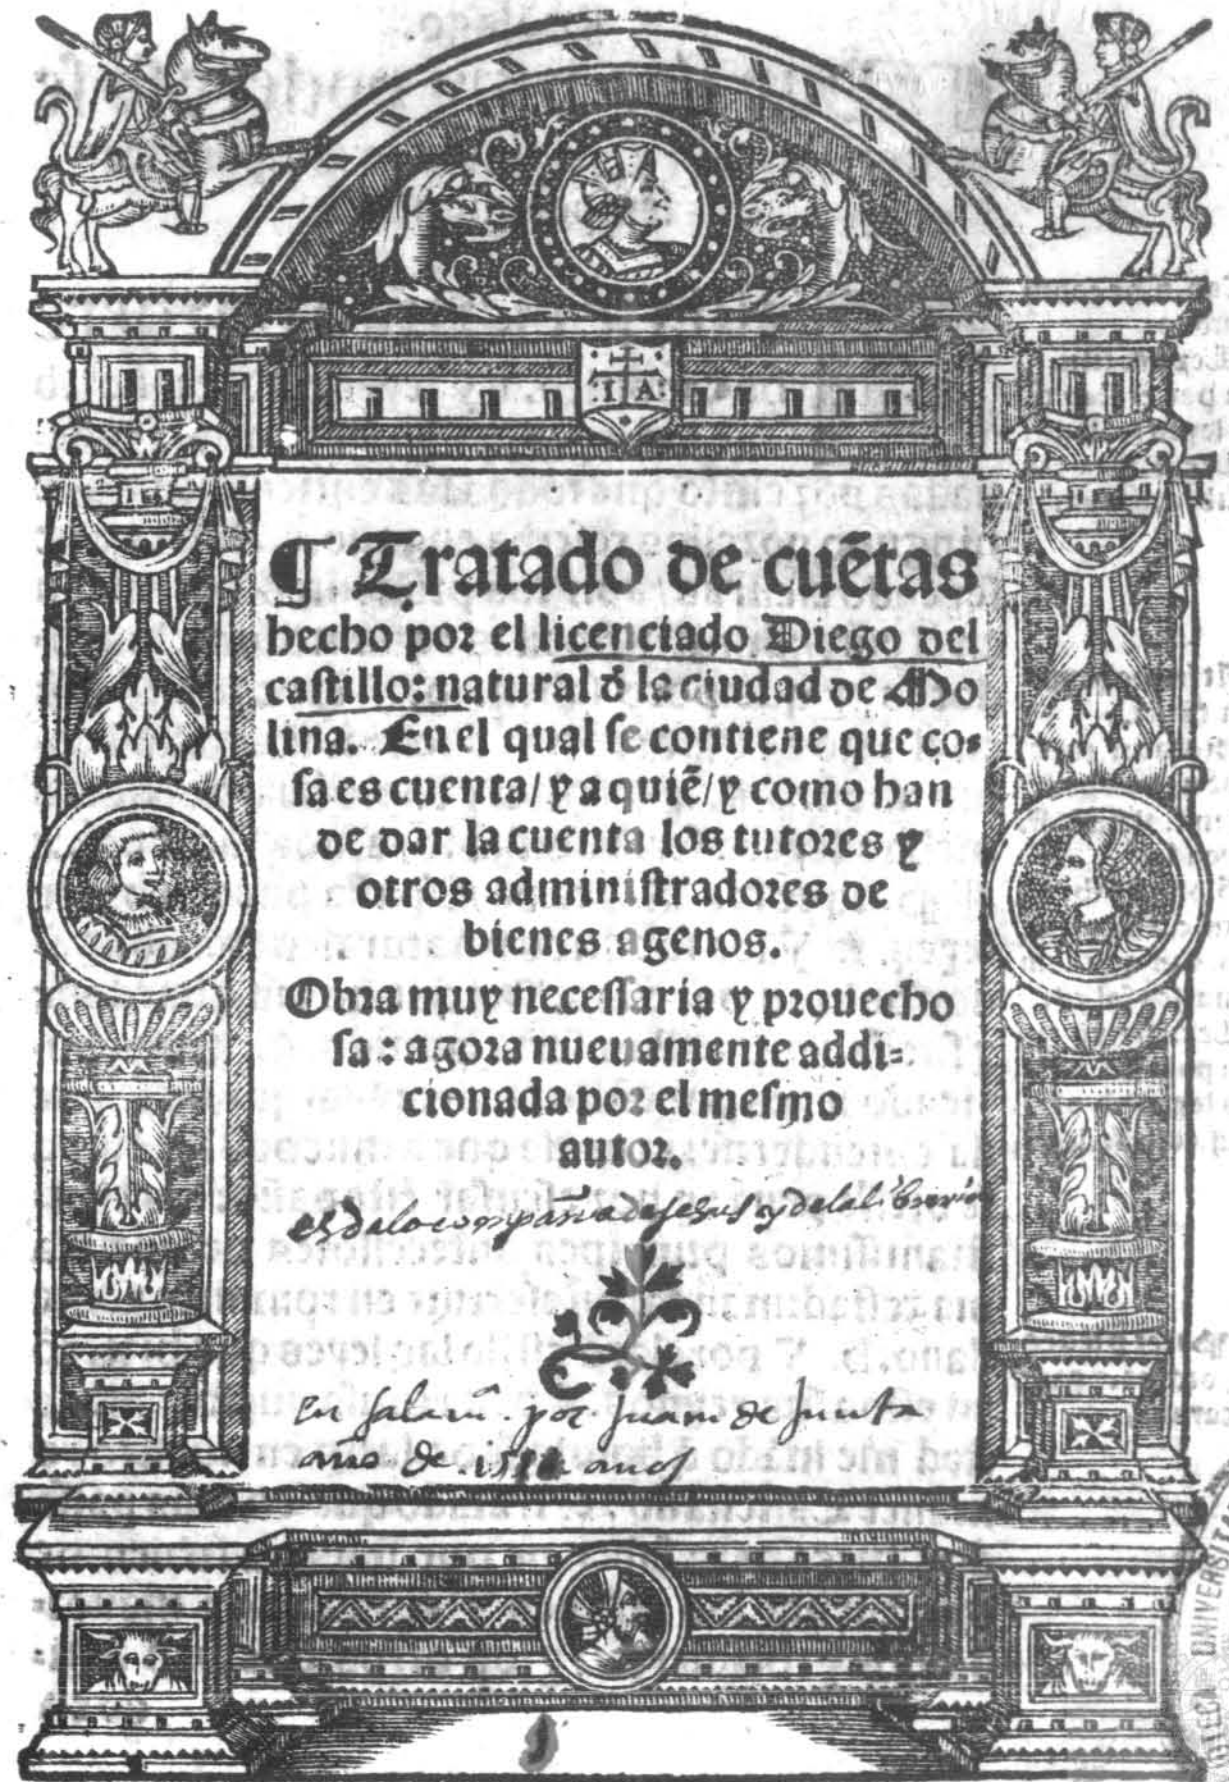 ·I· A·
¶ Tratado de cuẽtas
hecho por el licenciado Diego del
castillo: natural d̃ la ciudad de Mo
lina. En el qual se contiene que co-
sa es cuenta/ y a quiẽ/ y como han
de dar la cuenta los tutores y
otros administradores de
bienes agenos.
Obra muy necessaria y prouecho
sa: agora nueuamente addi-
cionada por el mesmo
autor.
es de la compañia de Jesus y de la libreria
En salamᵃ. por Juan de Junta
año de años
UNIVERSIT